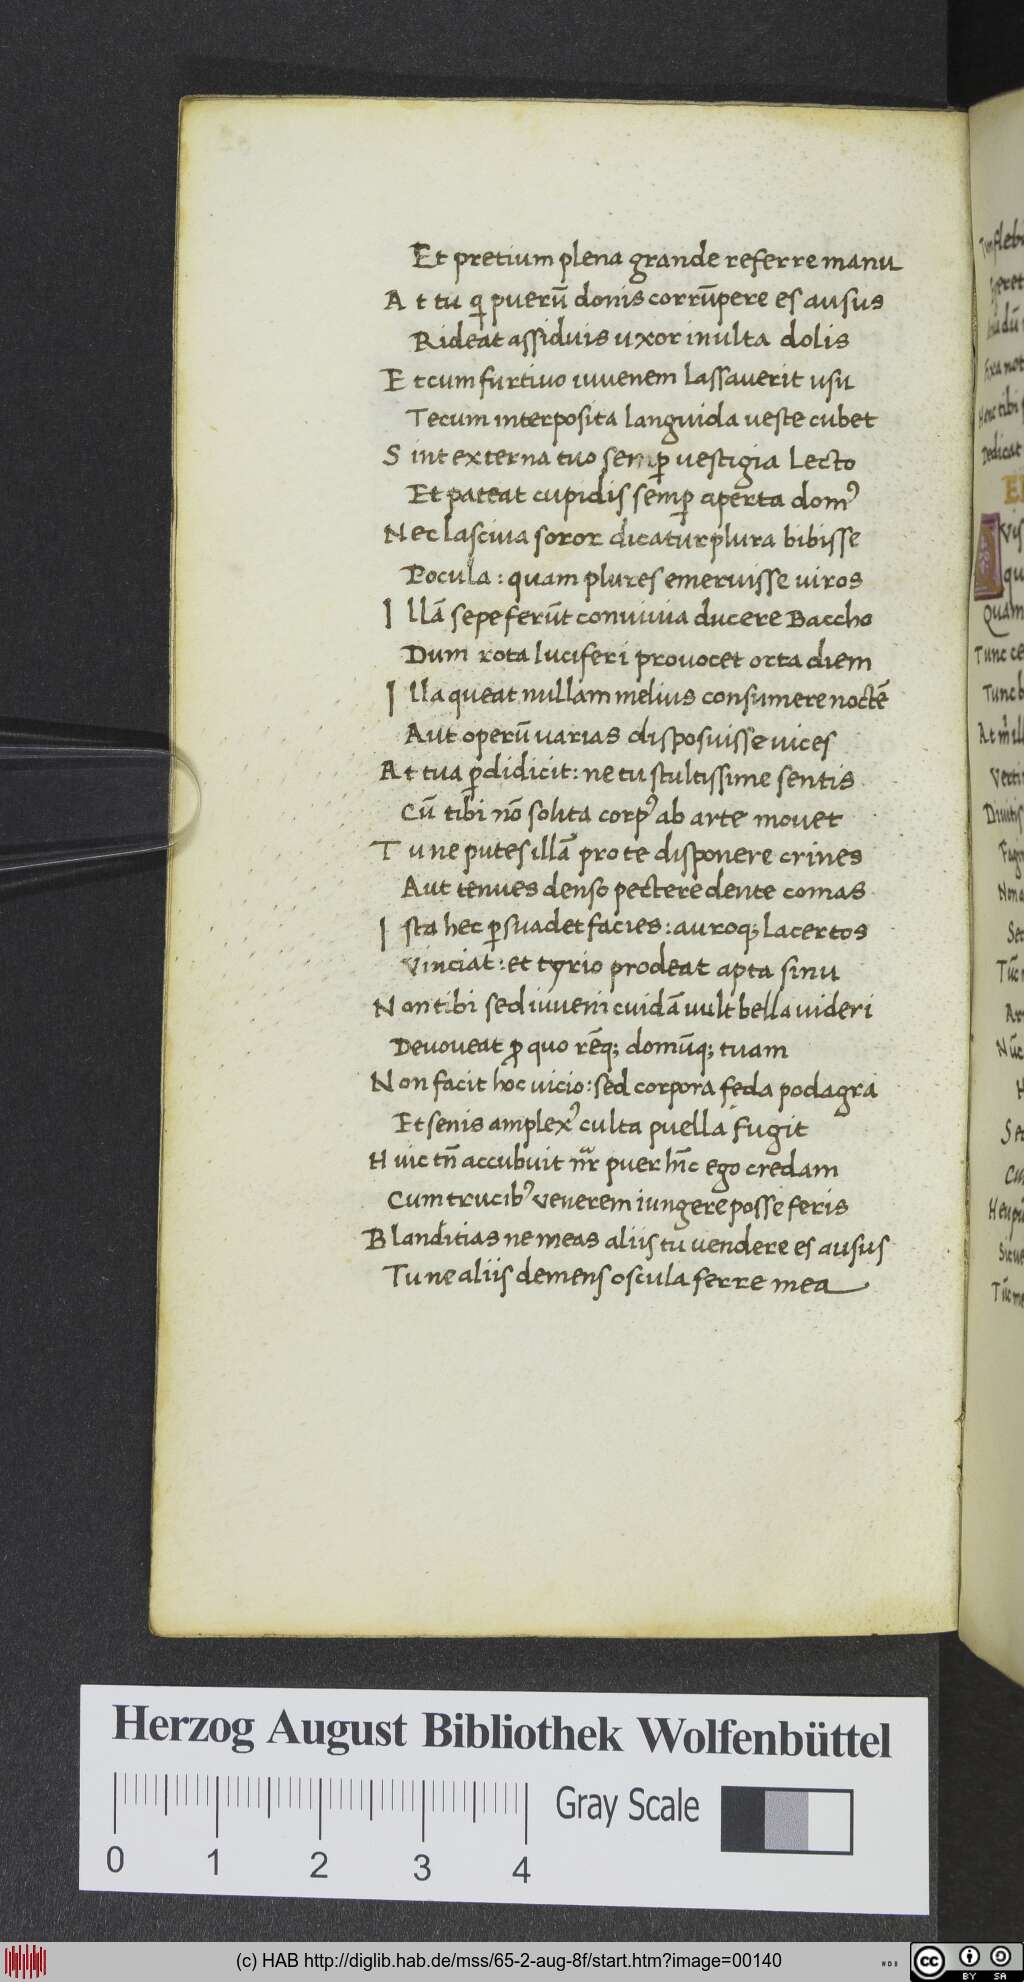 Et pretium plena grande referre manu
A t tu q̇ puerū donis corrūpere es ausus
Rideat assiduis uxor inulta dolis
E t cum furtiuo iuuenem lassauerit usu
Tecum interposita languida ueste cubet
S int externa tuo semꝑ uestigia Lecto
Et pateat cupidis semꝑ aperta domꝰ
N ec lasciua soror dicatur plura bibisse
Pocula : quam plures emeruisse uiros
I llā sepe ferūt conuiuia ducere Baccho
Dum rota luciferi prouocet orta diem
I lla queat nullam melius consumere noctē
Aut operū uarias disposuisse uices
A t tua ꝑdidicit : ne tu stultissime sentis
Cū tibi nō solita corpꝰ ab arte mouet
T u ne putes illā pro te disponere crines
Aut tenues denso pectere dente comas
I sta hec ꝑsuadet facies : auroq; lacertos
Vinciat : et tyrio prodeat apta sinu
N on tibi sed iuueni cuidā uult bella uideri
Deuoueat ꝓ quo rēq; domūq; tuam
N on facit hoc uicio : sed corpora feda podagra
Et senis amplexꝰ culta puella fugit
H uic tn̄ accubuit nr̄ puer hīc ego credam
Cum trucibꝰ venerem iungere posse feris
B landitias ne meas aliis tu uendere es ausus
Tu ne aliis demens oscula ferre mea
Herzog August Bibliothek Wolfenbüttel
Gray Scale
0 1 2 3 4
(c) HAB http://diglib.hab.de/mss/65-2-aug-8f/start.htm?image=00140
cc BY SA